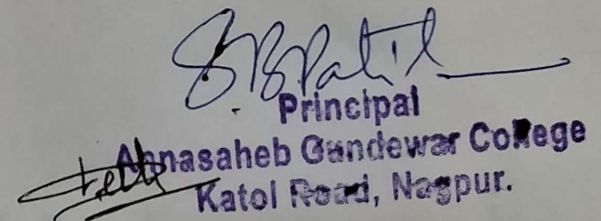 S.B.Patil
Principal
Annasaheb Gundewar College
Katol Road, Nagpur.